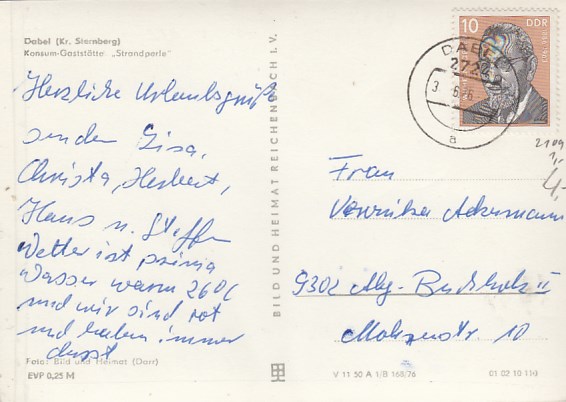 Dabel (Kr. Sternberg)
Konsum-Gaststätte „Strandperle"
Herzliche Urlaubsgrüße
senden Gisa,
Christa, Herbert,
Hans u. Steffen
Wetter ist prima
Wasser warm 26°C
und wir sind rot
und haben immer
durst
Foto: Bild und Heimat (Darr)
EVP 0,25 M
BILD UND HEIMAT REICHENBACH I. V.
10 DDR
DABEL
2722
a
2109
1,-
4,-
Frau
Veronika Ackermann
9302 Abg.-Buchholz II
10
V 11 50 A 1/B 168/76
01 02 10 110